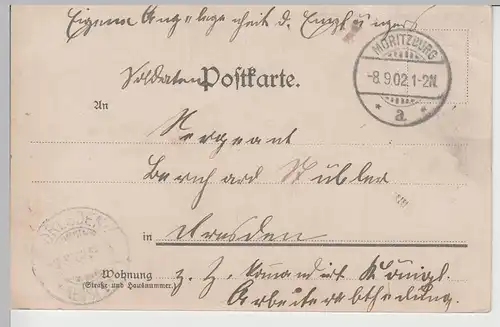 Eigene Angelegenheit d. Empfängers
Soldaten Postkarte.
MORITZBURG
-8.9.02.1-2N.
* a. *
An
Sergeant
Bernhard Kübler
in Dresden
DRESDEN
Wohnung z. Z. komandirt Königl.
(Straße und Hausnummer.)
Arbeiterabtheilung.